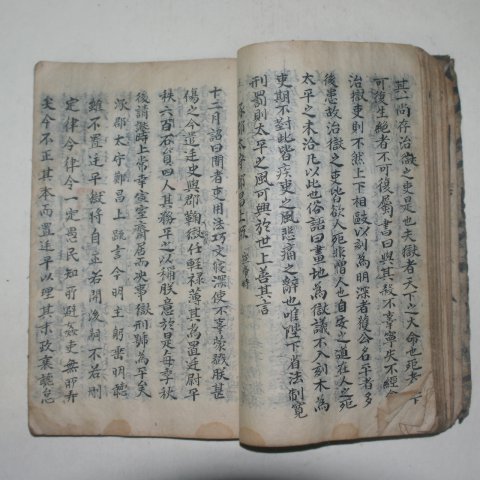 其一尚存治獄之吏是也夫獄者天下之大命也死者不
可復生絶者不可復屬書曰與其殺不辜寧失不經今
治獄吏則不然上下相敺以刻為明深者獲公名平者多
後患故治獄之吏皆欲人死非憎人也自安之道在人之死
太平之未洽凡以此也俗語曰畫地為獄議不入刻木為
吏期不對此皆疾吏之風悲痛之辭也唯陛下省法制寬
刑罰則太平之風可興於世上善其言
涿郡太守鄭昌上疏
十二月詔曰間者吏用法巧文寢深使不辜蒙戮朕甚
傷之今遣廷史與郡鞠獄任輕祿薄其為置廷尉平
秩六百石員四人其務平之以稱朕意於是每季秋
後請讞時上常幸宣室齋居而决事獄刑號為平矣
涿郡太守鄭昌上疏言今明主躬垂明聽
雖不置廷平獄將自正若開後嗣不若刪
定律令律令一定愚民知所避姦吏無所弄
矣今不正其本而置廷平以理其末政衰聽怠